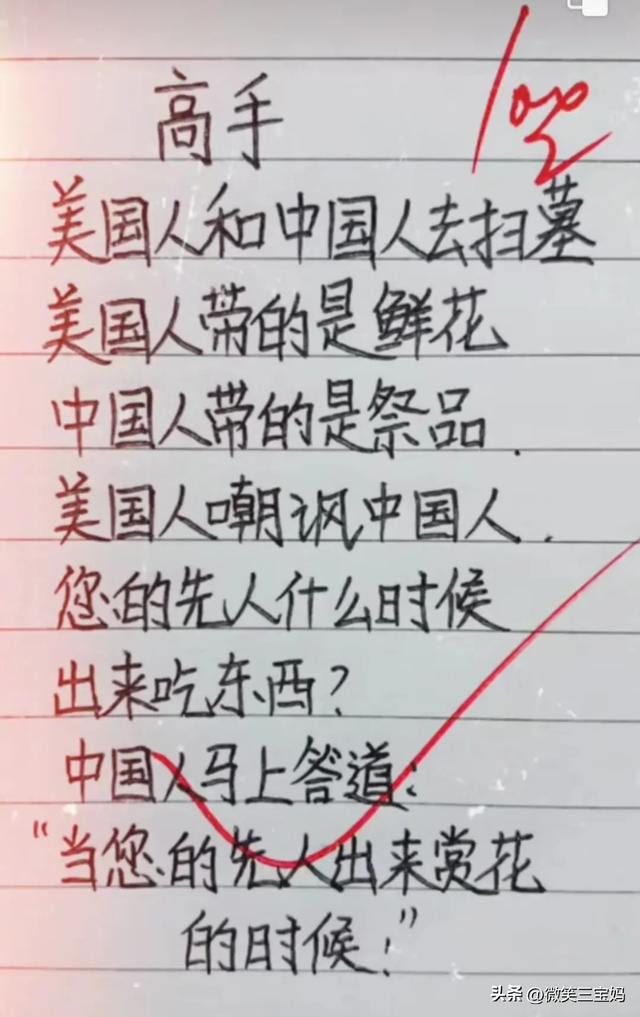 高手
美国人和中国人去扫墓
美国人带的是鲜花
中国人带的是祭品.
美国人嘲讽中国人.
您的先人什么时候
出来吃东西?
中国人马上答道:
“当您的先人出来赏花
的时候!”
头条 @微笑三宝妈